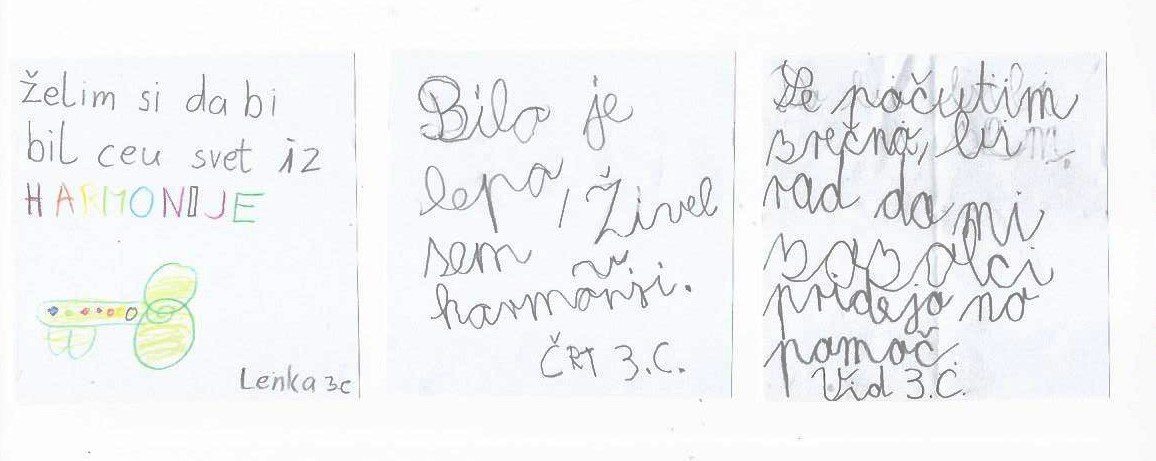 želim si da bi
bil ceu svet iz
HARMONIJE
Lenka 3c
Bilo je
lepo, Živel
sem v
harmoniji.
ČRT 3.C.
Se počutim
srečno, bi
rad da mi
sošolci
pridejo na
pomoč.
Vid 3.C.